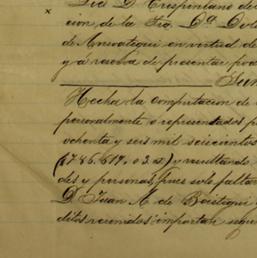 Lic D. Crespiniano de
cion de la Sra. Da. Dolo
de Amovategui en virtud de
y á reserva de presentar pod
Jun
Hecha la computacion de
personalmente o representados p
ochenta y seis mil seiscientos
(1786.617.03 z) y resultando
des y personas, pues solo faltar
D. Juan A. de Beistegui
ditos reunidos importan segu